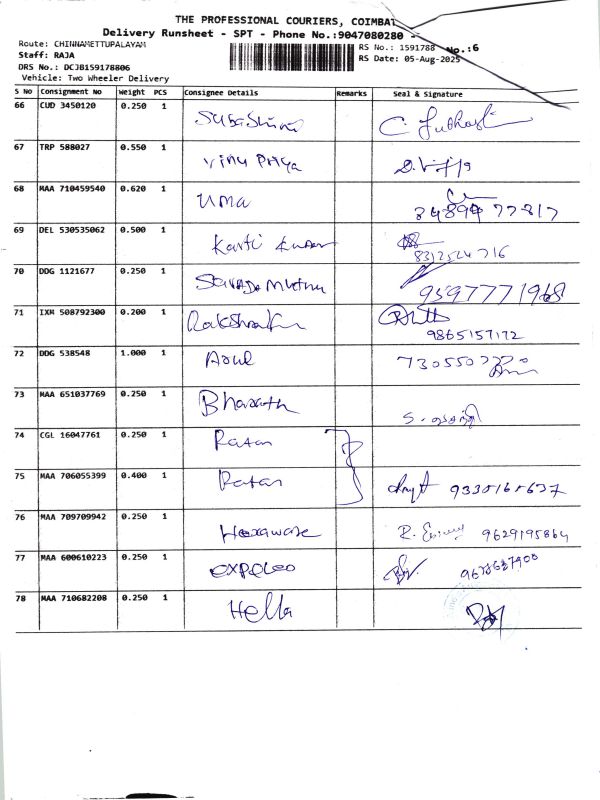 THE PROFESSIONAL COURIERS, COIMBAT
Delivery Runsheet - SPT - Phone No.:9047080280 -
Route: CHINNAMETTUPALAYAM
RS No.: 1591788 No.:6
Staff: RAJA
RS Date: 05-Aug-2025
DRS No.: DCJB159178806
Vehicle: Two Wheeler Delivery
S No Consignment No Weight PCS Consignee Details Remarks Seal & Signature
66 CUD 3450120 0.250 1 Subashini
67 TRP 588027 0.550 1 Vinu Priya
68 MAA 710459540 0.620 1 Uma
69 DEL 530535062 0.500 1 Karti Kumar 8312524716
70 DDG 1121677 0.250 1 9597771968
71 IXM 508792300 0.200 1 9865157172
72 DDG 538548 1.000 1 Arul
73 MAA 651037769 0.250 1 Bharath
74 CGL 16047761 0.250 1 Ratan
75 MAA 706055399 0.400 1 Ratan 9330165637
76 MAA 709709942 0.250 1 Hexaware 9629195864
77 MAA 600610223 0.250 1 expleo
78 MAA 710682208 0.250 1 Hella